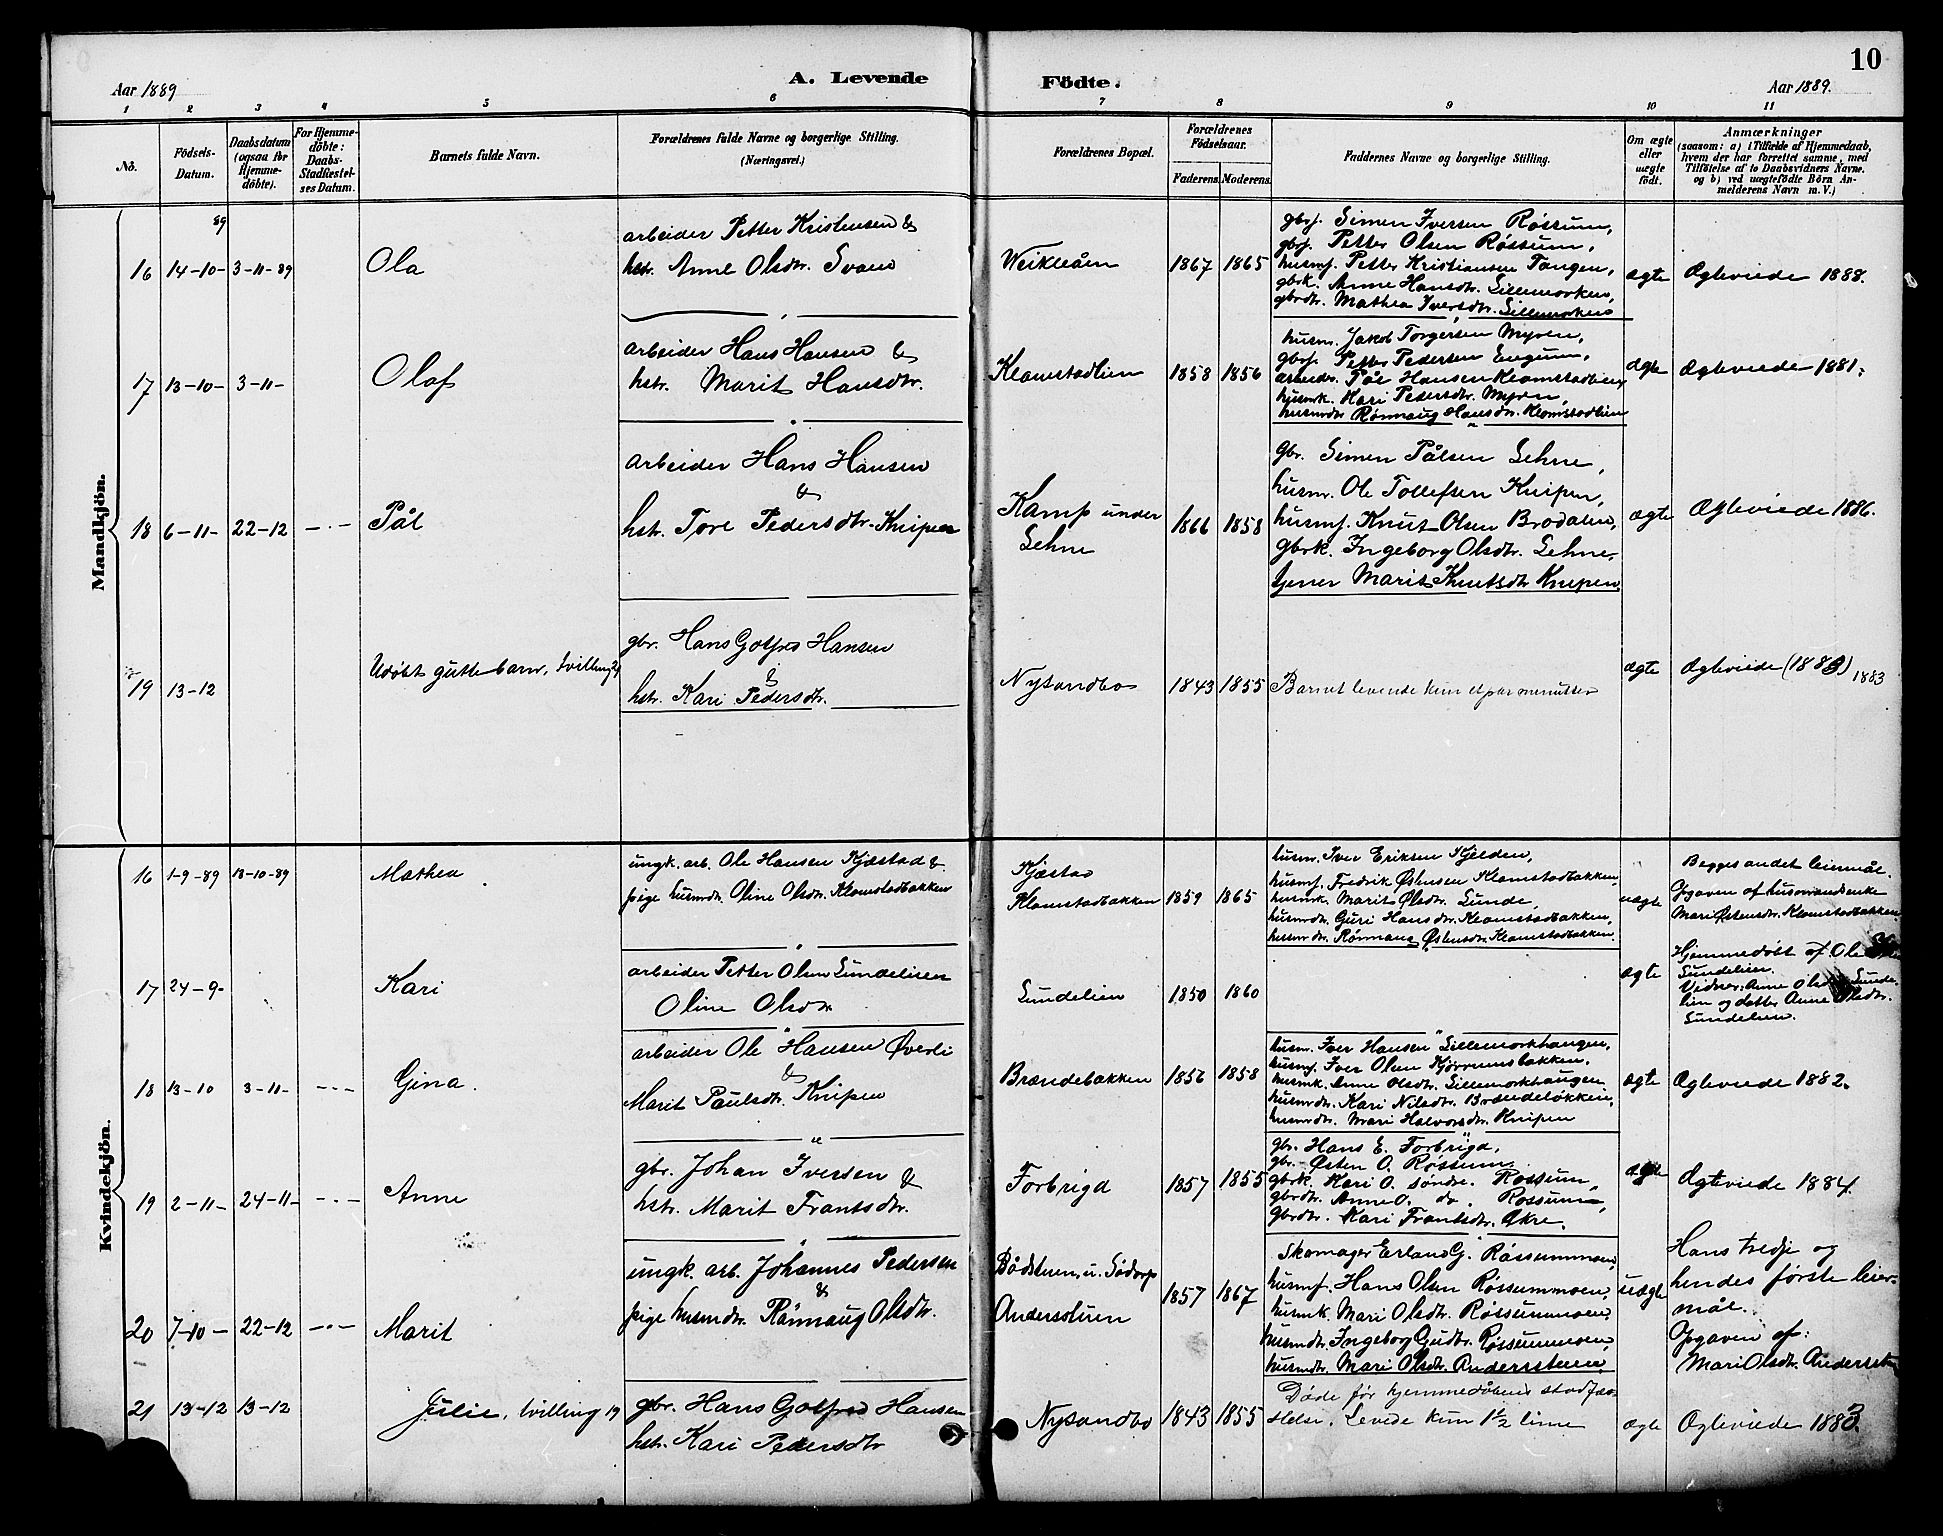 10
Aar 1889
A. Levende
Födte.
Aar 1889.
1 2 3 4 5 6 7 8 9 10 11
No.
Födsels-
Datum.
Daabsdatum
(ogsaa for
Hjemme-
döbte).
For Hjemme-
döbte:
Daabs-
Stadfæstel-
ses Datum.
Barnets fulde Navn.
Forældrenes fulde Navne og borgerlige Stilling.
(Næringsvei.)
Forældrenes Bopæl.
Forældrenes
Födselsaar.
Faderens. Moderens.
Faddernes Navne og borgerlige Stilling.
Om ægte
eller
uægte
födt.
Anmærkninger
(saasom: a) i Tilfælde af Hjemmedaab,
hvem der har forrettet samme, med
Tilföielse af to Daabsvidners Navne.
og b) ved uægtefödte Börn An-
melderens Navn m. V.)
Mandkjön.
89
16 14-10- 3-11-89
Ola
arbeider Petter Kristensen &
hstr. Anne Olsdtr. Svaen
Weikleåen
1867 1865
gbrf. Simen Iversen Røssum,
gbrf. Petter Olsen Røssum,
husmf. Petter Kristiansen Tangen,
gbrk. Anne Hansdtr. Lillemorken,
gbrdtr. Mathea Iversdtr. Lillemorken
ægte
Ægteviede 1888.
17 13-10- 3-11-
Olaf
arbeider Hans Hansen &
hstr. Marit Hansdtr.
Klomstadlien
1858 1856
husm. Jakob Torgersen Myren,
gbrf. Petter Pedersen Engum,
arbeider. Pål Hansen Klomstadlien,
husmk. Kari Pedersdtr. Myren,
husmdtr Rønnaug Hansdtr. Klomstadlien
ægte
Ægteviede 1881.
18 6-11- 22-12 -·-
Pål
arbeider Hans Hansen
&
hstr. Tore Pedersdtr. Knipen
Kamp under
Lehne
1866 1858
gbr. Simen Pålsen Lehne,
husm. Ole Tollefsen Knipen,
husmf. Knut Olsen Brodalen,
gbrk. Ingeborg Olsdtr. Lehne,
tjener Marit Knutsdtr Knipen
ægte
Ægteviede 1886.
19 13-12
Udøbt guttebarn, tvilling 21
gbr. Hans Gotfred Hansen
&
hstr. Kari Pedersdtr.
Nysandbo
1843 1855
Barnet levende kun et par minutter
ægte
Ægteviede (1883) 1883
Kvindekjön.
16 1-9-89 13-10-89
Mathea
ungk. arb. Ole Hansen Kjæstad &
pige husmdtr Oline Olsdtr. Klomstadbakken
Kjæstad
Klomstadbakken
1859 1865
husm. Iver Eriksen Kjelden,
husmf. Fredrik Østensen Klomstadbakken,
husmk. Marit Olsdtr. Sunde,
husmdtr. Guri Hansdtr. Klomstadbakken,
husmdtr. Rønnaug Østensdtr. Klomstadbakken.
uægte
Begges andet leiermål.
Opgaven af husmandsenke
Mari Østensdtr. Klomstadbakken
17 24-9-
Kari
arbeider Petter Olsen Sundelien
Oline Olsdtr
Sundelien
1850 1860
ægte
Hjemmedøbt af Ole
Sundelien.
Vidner: Anne Olsdtr Sunde-
lien og datter Anne Olsdtr.
Sundelien.
18 13-10 3-11- -·-
Gina.
arbeider Ole Hansen Øverli
&
Marit Paulsdtr. Knipen
Brændebakken
1856 1858
husm. Iver Hansen Lillemorkhaugen,
husmf. Iver Olsen Kjørrumsbakken,
husmk. Anne Olsdtr. Lillemorkhaugen
husmdtr. Kari Nilsdtr. Brændeløkken,
husmdtr. Mari Halvorsdtr. Knipen
ægte
Ægteviede 1882.
19 2-11- 24-11- -·-
Anne
gbr. Johan Iversen
&
hstr. Marit Frantsdtr.
Forbrigd
1857 1855
gbr. Hans E. Forbrigd,
gbr. Østen O. Røssum
gbrk. Kari O. søndre Rossum,
gbrdtr. Anne O. do, Rossum,
gbrdtr. Kari Frantsdtr. Åkre.
ægte
Ægteviede 1884.
20 7-10- 22-12 -·-
Marit
ungk. arb. Johannes Pedersen
&
pige husmdtr. Rønnaug Olsdtr.
Bådstuen, u. Sødorp
Anderstuen
1857 1867
Skomager Erland G. Røssummoen,
husmf. Hans Olsen Røssummoen,
husmk Mari Olsdtr. Røssummoen,
husmdtr. Ingeborg Gudbr. Røssummoen,
husmdtr. Mari Olsdtr. Andersstuen
uægte
Hans tredje og
hendes første leier-
mål.
Opgaven af:
Mari Olsdtr. Andersst
21 13-12 13-12
Julie, tvilling 19
gbr. Hans Gotfred Hansen
hstr. Kari Pedersdtr
Nysandbo
1843 1855
Døde før hjemmedåbens stadfæs-
telse. Levede kun 1½ time
ægte
Ægteviede 1883.